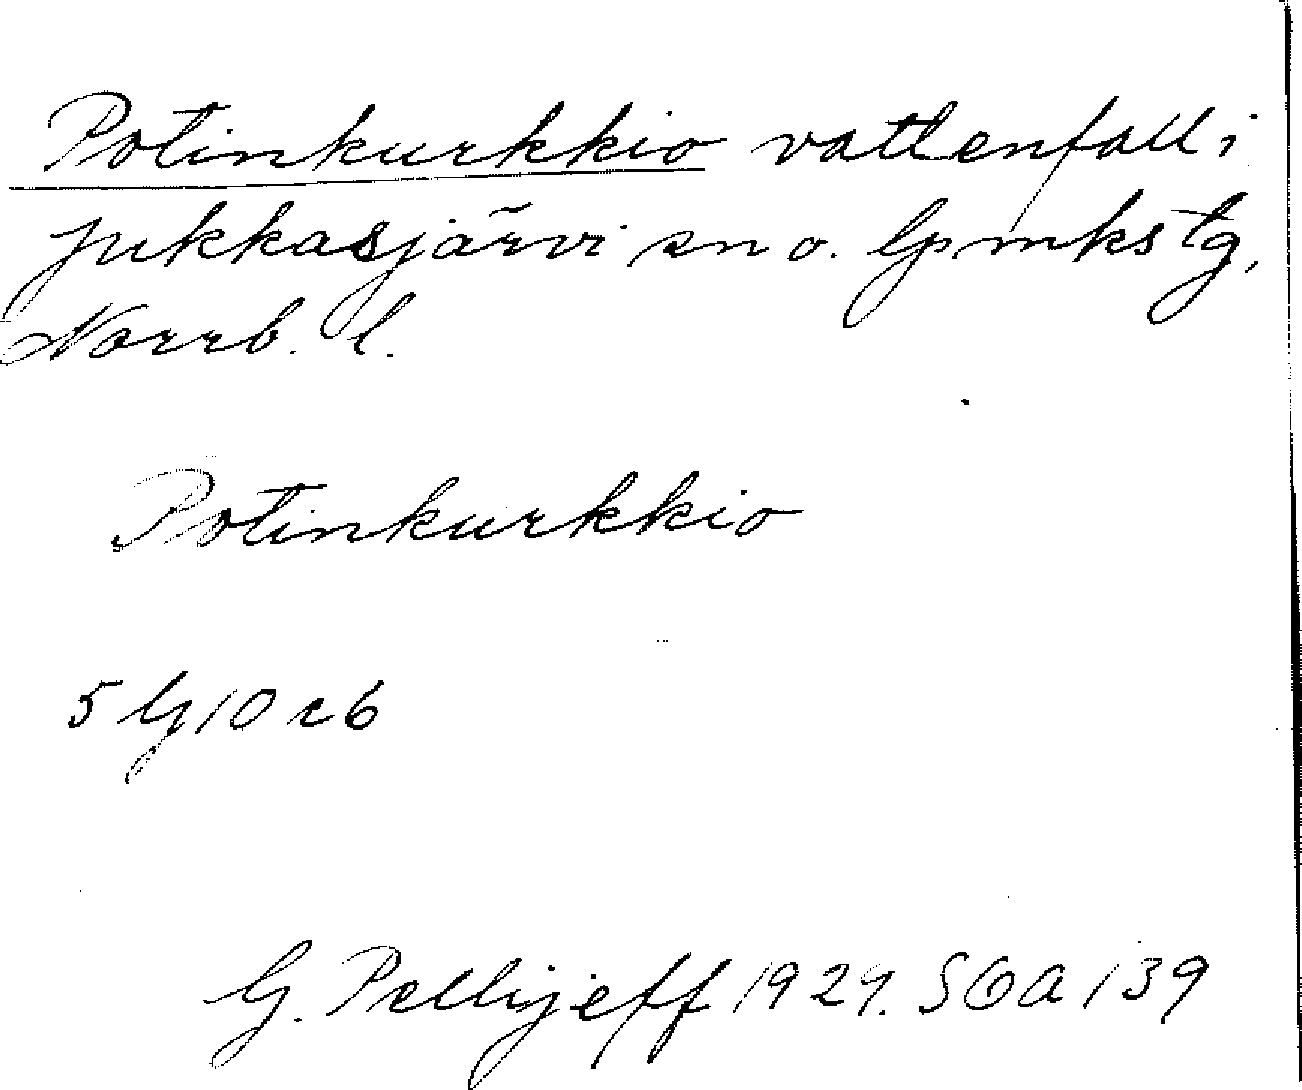 Potinkurkkio vattenfall i
Jukkasjärvi sn o. lpmkstg,
Norrb. l.
Potinkurkkio
5 G 10 c b
G. Pellijeff 1929. SOA 139